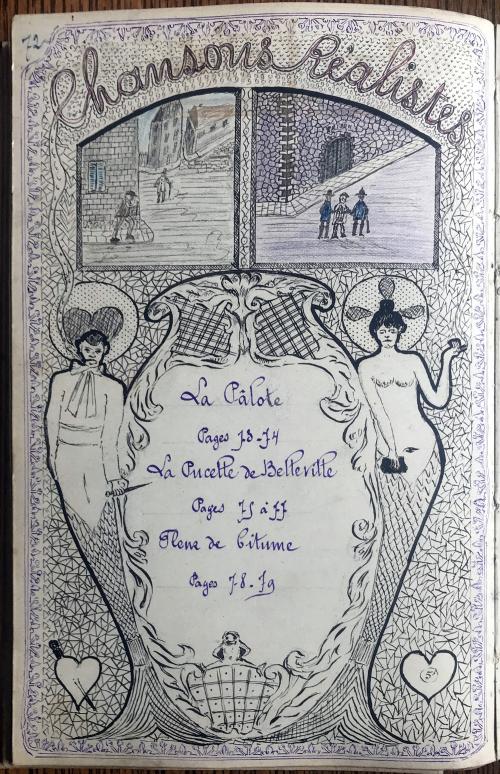 72
Chansons Réalistes
La Pâlote
Pages 73-74
La Pucelle de Belleville
Pages 75 à 77
Fleur de bitume
Pages 78-79